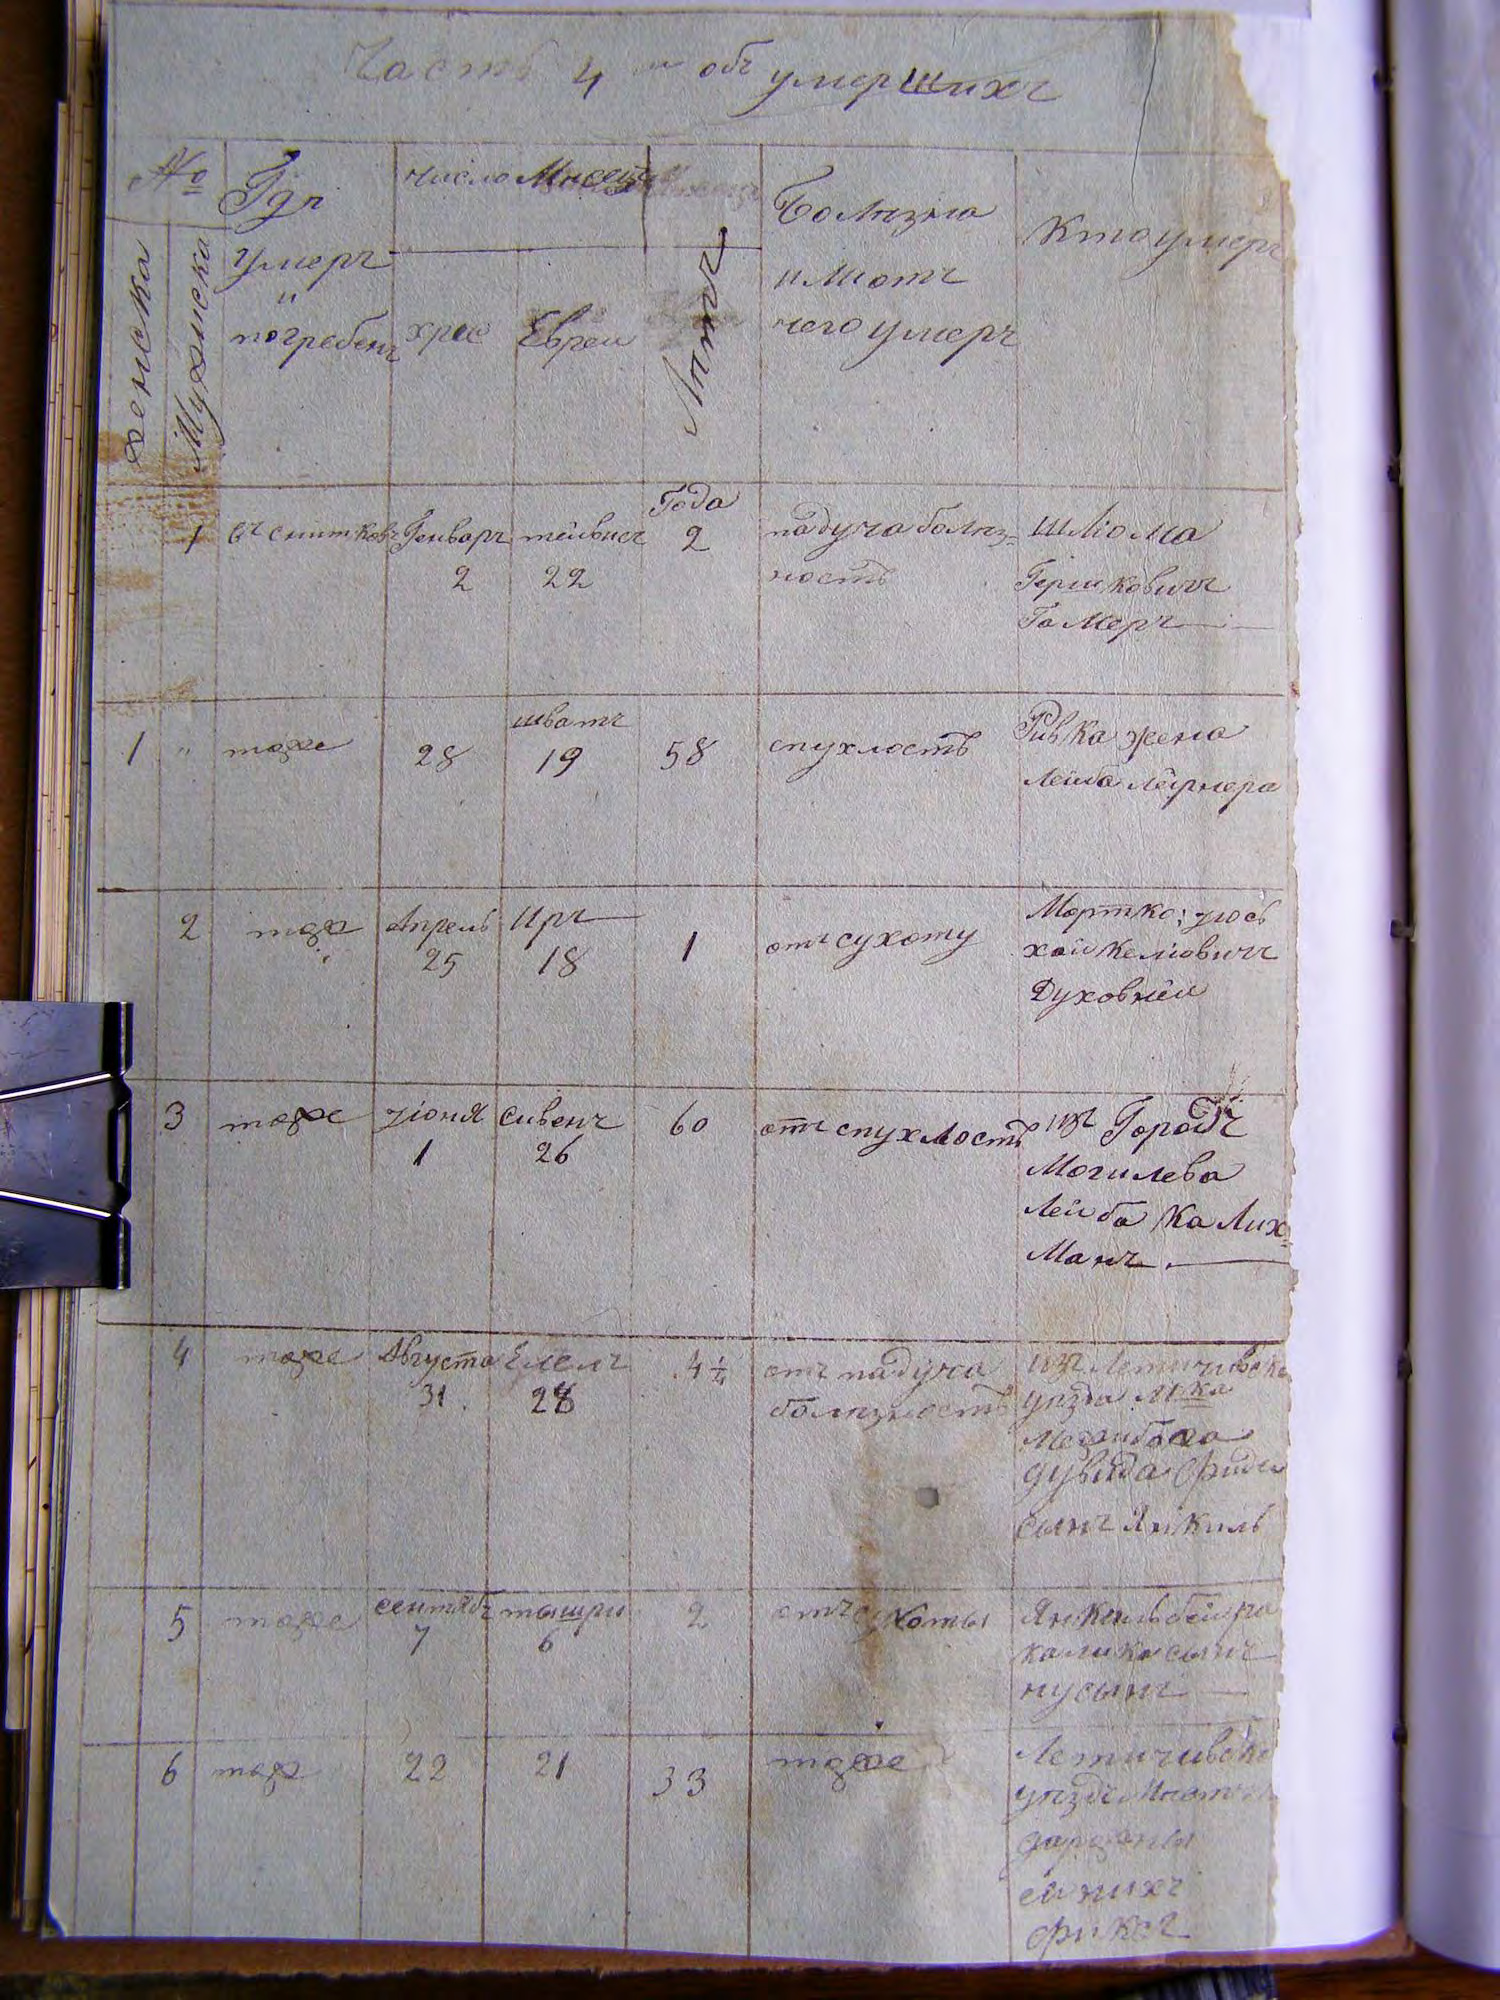 Часть 4 ая объ умершихъ
№ Гдѣ умеръ и погребенъ
Женска
Мужеска
число Мѣсяцъ
хрес Евреи
Лѣтъ
Болѣзна
или отъ
чего умеръ
Кто умеръ
1 въ снитковѣ Генваръ 2 тейвисъ 22 Года 2 падуча болѣз=
ность
шлiома
Гершковичъ
Гомеръ
1 " тоже 28 шватъ 19 58 спухлость
Ривка жена
Лейба Лернера
2 тоже Апрель 25 Иръ 18 1 отъ сухоту
Мортко; зюсь
хайкелiовичъ
Духовнiй
3 тоже Iюня 1 сивенъ 26 60 отъ спухлость
изъ Городъ
Могилева
Лейба Калих=
Манъ
4 тоже Августа 31 Елелъ 28 4 1/4 отъ падуча
болѣзность
изъ Летичивска
уѣзда М ка
Межибожа
дувида
сынъ Янкиль
5 тоже сентябъ 7 тышри 6 2 отъ сухоты
Янкель бейра
калика сынъ
нусынъ
6 тоже 22 21 33 тоже
Летичивска
уѣздъ
фиксъ